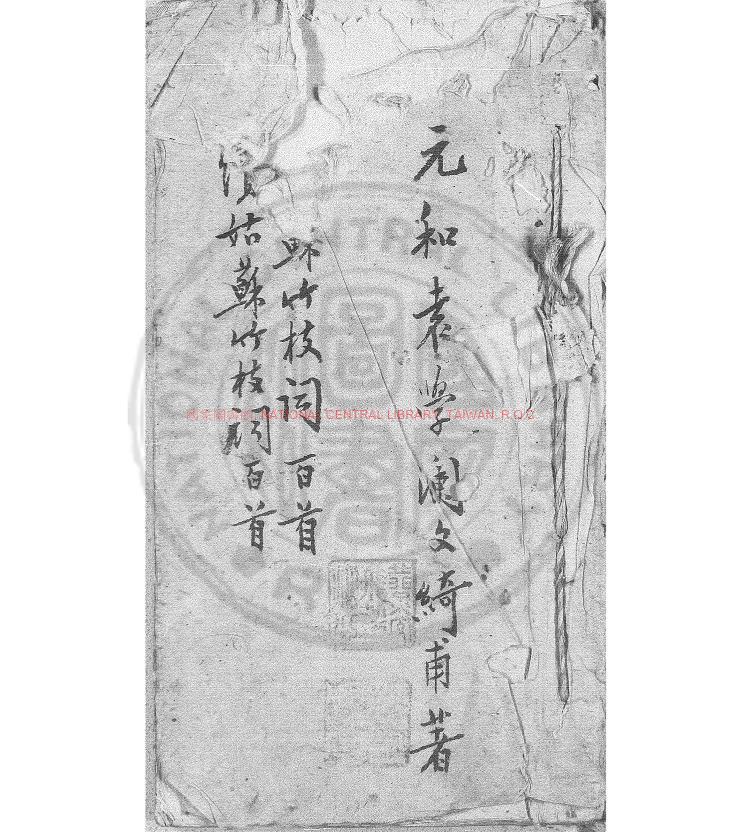 元和袁學瀾文綺甫著
竹枝詞百首
續姑蘇竹枝詞百首
NATIONAL CENTRAL LIBRARY, TAIWAN, R.O.C